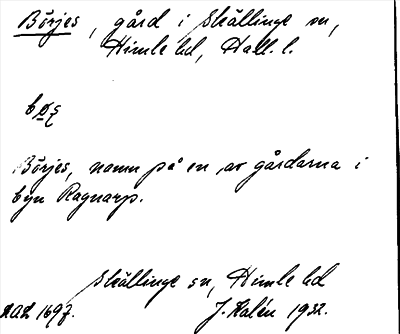 Börjes, gård i Skällinge sn,
Himle hd, Hall. l.
Börjes, namn på en av gårdarna i
byn Ragnarp.
Skällinge sn, Himle hd
1697. J. Kalén 1932.